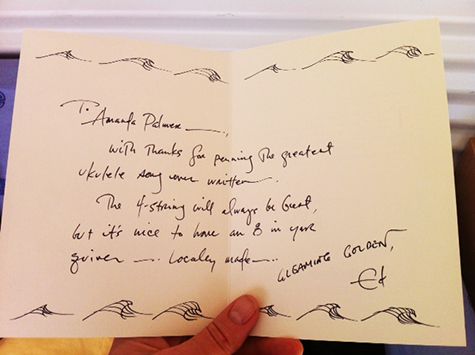 To Amanda Palmer —,
with thanks for penning the greatest
ukulele song ever written.
The 4-string will always be Great,
but it's nice to have an 8 in your
quiver —. Locally made —.
GLEAMING GOLDEN,
Ed